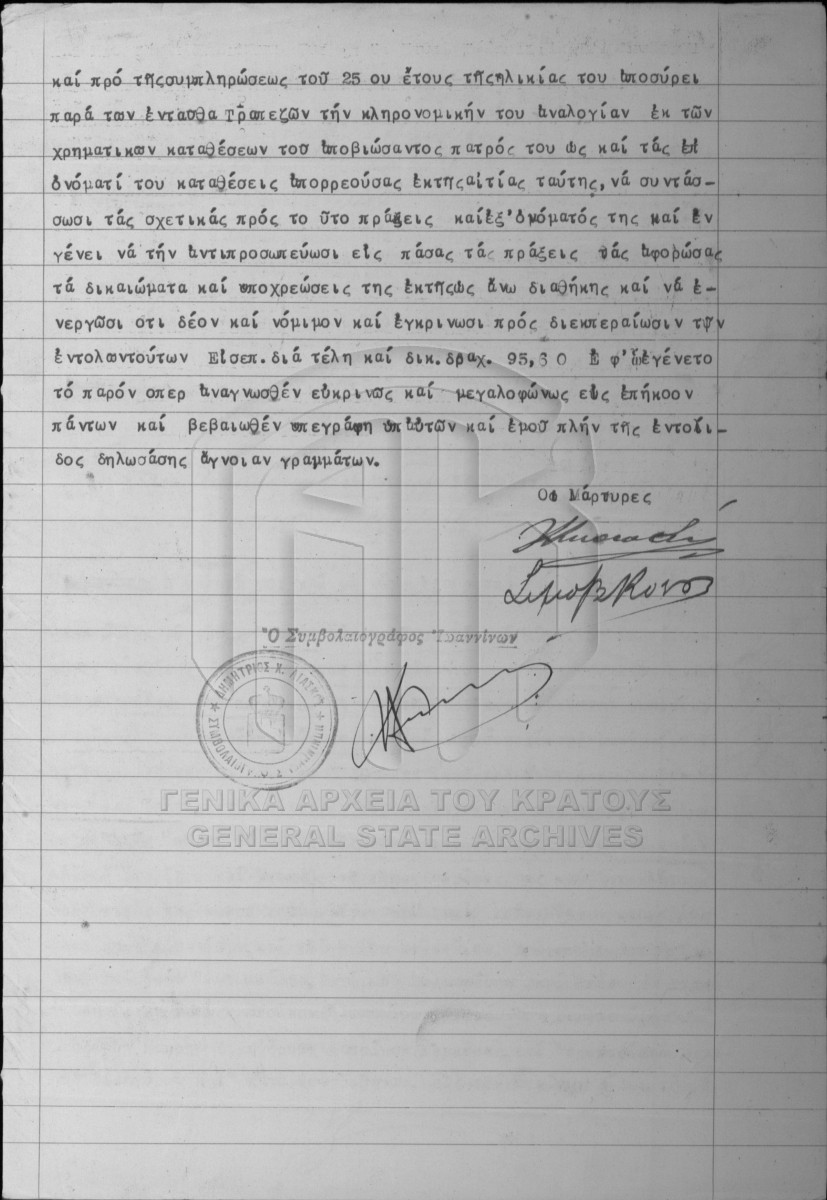 καί πρό τῆςσυμπληρώσεως τοῦ 25 ου ἔτους τῆςηλικίας του ἀποσύρει
παρά των ἐνταῦθα Τραπεζῶν τήν κληρονομικήν του ἀναλογίαν ἐκ τῶν
χρηματικων καταθέσεων τοῦ ἀποβιώσαντος πατρός του ὡς καί τάς ἐπ
ὀνόματί του καταθέσεις ἀπορρεούσας ἐκτῆςαἰτίας ταύτης, νά συντάσ-
σωσι τάς σχετικάς πρός το ῦτο πράξεις καίἐξ'ὀνόματός της καί ἐν
γένει νά τήν ἀντιπροσωπεύωσι εἰς πάσας τάς πράξεις τάς ἀφορώσας
τά δικαιώματα καί ὑποχρεώσεις της ἐκτῆςὡς ἄνω διαθήκης καί νά ἐ-
νεργῶσι οτι δέον καί νόμιμον καί ἐγκρινωσι πρός διεκπεραίωσιν τῶν
ἐντολωντούτων Εἰσεπ.διά τέλη καί δικ.δραχ. 95,30 Ἐ φ'ᾧἐγένετο
τό παρόν οπερ ἀναγνωσθέν εὐκρινῶς καί μεγαλοφώνως εἰς ἐπήκοον
πάντων καί βεβαιωθέν ὑπεγράφη ὑπ'αὐτῶν καί ἐμοῦ πλήν τῆς ἐντολι-
δος δηλωσάσης ἄγνοιαν γραμμάτων.
Οἱ Μάρτυρες
Ὁ Συμβολαιογράφος Ἰωαννίνων
ΓΕΝΙΚΑ ΑΡΧΕΙΑ ΤΟΥ ΚΡΑΤΟΥΣ
GENERAL STATE ARCHIVES